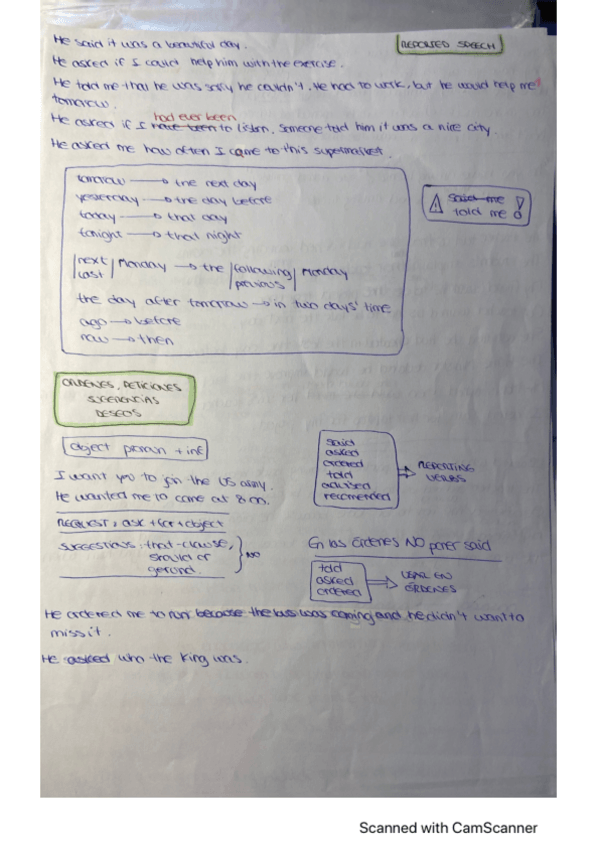 REPORTED SPEECH
He said it was a beautiful day.
He asked if I could help him with the exercise.
He told me that he was sorry he couldn't. He had to work, but he would help me
tomorrow.
had ever been
He asked if I have been to Lisbon, someone told him it was a nice city.
He asked me how often I came to this supermarket.
tomorrow → the next day
yesterday → the day before
today → that day
tonight → that night
said me
told me
next / last Monday → the following / previous Monday
the day after tomorrow → in two days' time
ago → before
now → then
ORDENES, PETICIONES
SUGERENCIAS
DESEOS
object pronoun + inf
I want you to join the US army.
He wanted me to come at 8:00.
said
asked
ordered
told
advised
recommended
REPORTING
VERBS
REQUEST, ask + for + object
SUGGESTIONS, that-clause,
should or
gerund.
NO
En las órdenes NO poner said
told
asked
ordered
USAR EN
ÓRDENES
He ordered me to run because the bus was coming and he didn't want to
miss it.
He asked who the king was.
Scanned with CamScanner